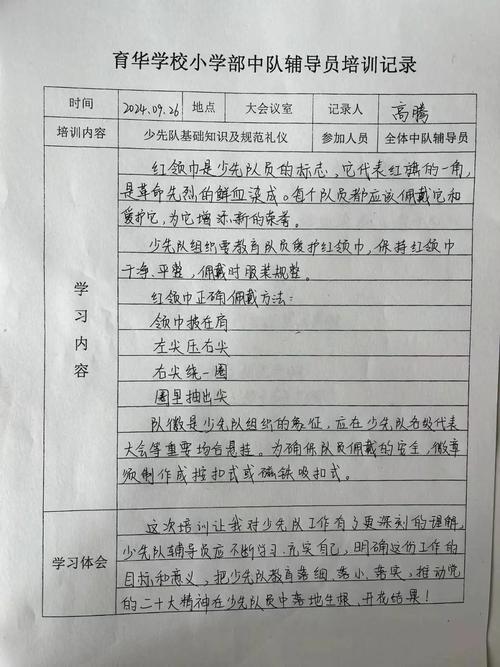 育华学校小学部中队辅导员培训记录
时间 2024.09.26 地点 大会议室 记录人 高腾
培训内容 少先队基础知识及规范礼仪 参加人员 全体中队辅导员
学习内容
红领巾是少先队员的标志，它代表红旗的一角，
是革命先烈的鲜血染成。每个队员都应该佩戴它和
爱护它，为它增添新的荣誉。
少先队组织要教育队员爱护红领巾，保持红领巾
干净、平整，佩戴时服装规整。
红领巾正确佩戴方法：
领巾披在肩
左尖压右尖
右尖绕一圈
圈里抽出尖
队徽是少先队组织的象征，应在少先队各级代表
大会等重要场合悬挂。为确保队员佩戴的安全，徽章
须制作成按扣式或磁铁吸扣式。
学习体会
这次培训让我对少先队工作有了更深刻的理解，
少先队辅导员应不断学习、充实自己，明确这份工作的
目标和意义，把少先队教育落细、落小、落实，推动党
的二十大精神在少先队员中落地生根、开花结果！